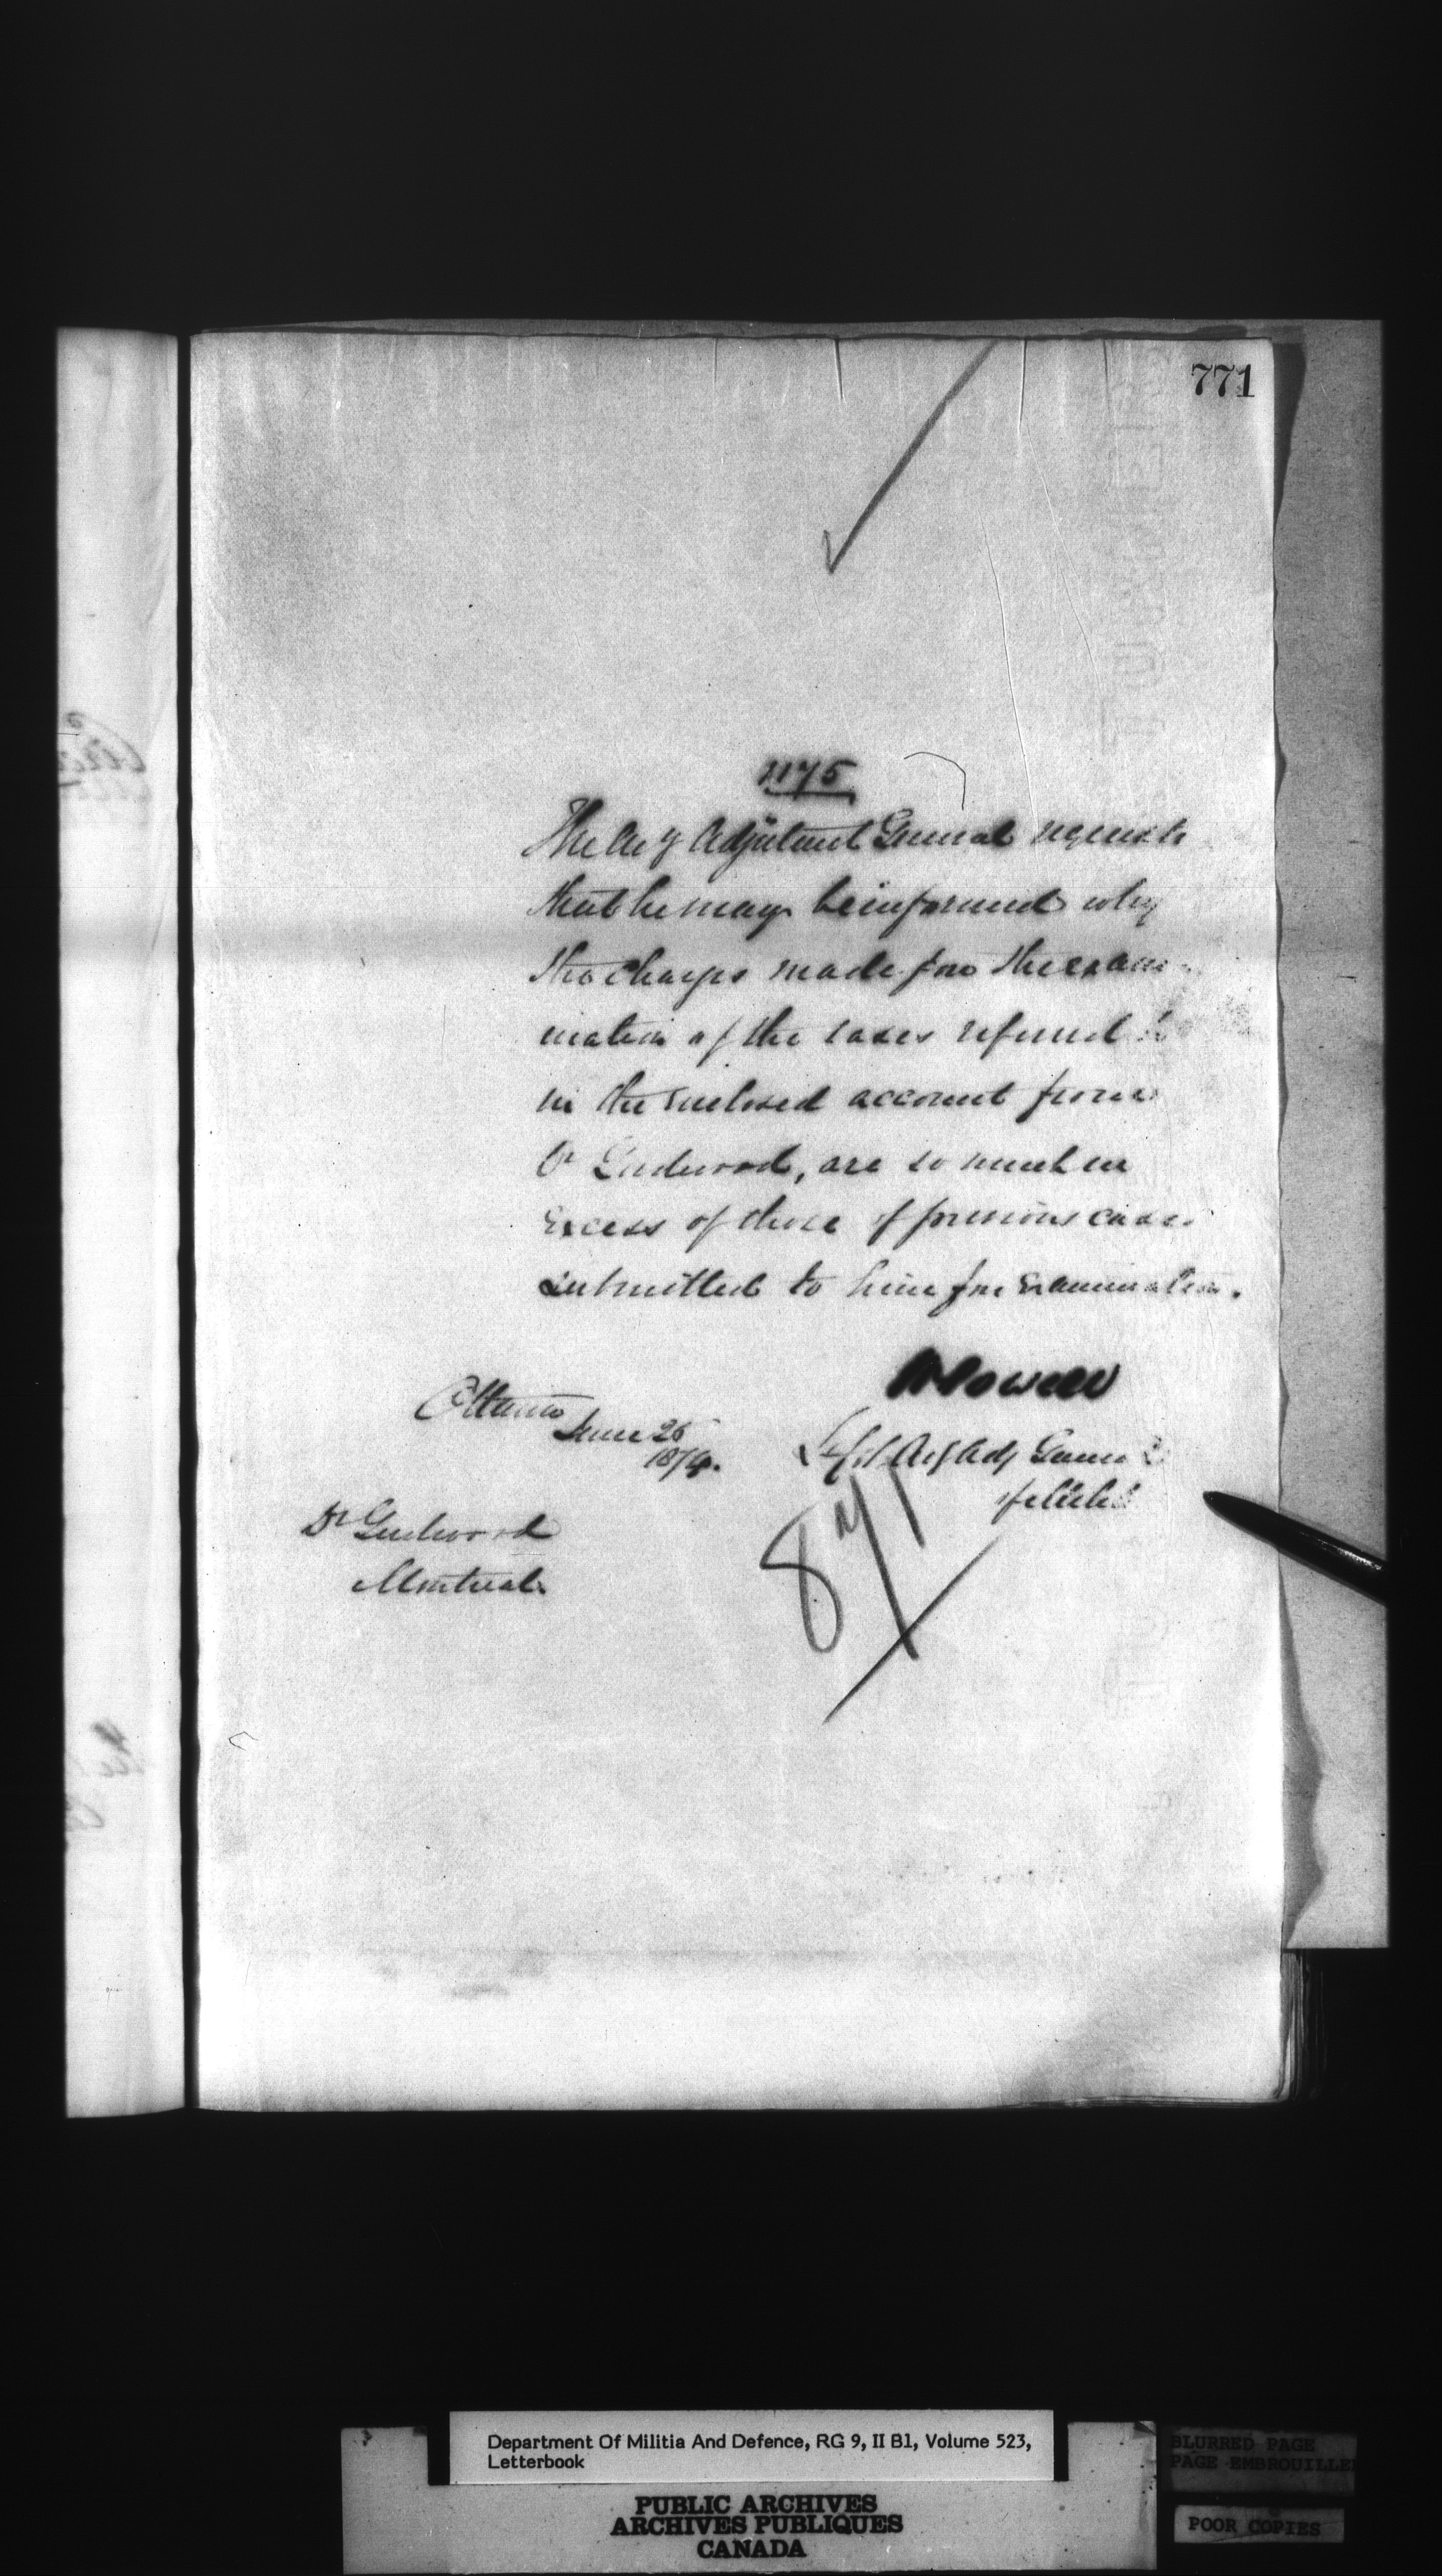 771
1175
The Actg Adjutant General requests
that he may be informed why
the charges made for the exam-
ination of the cases referred to
in the enclosed account from
Dr Girdwood, are so much in
excess of those of previous cases
submitted to him for Examination.
Powell
Lt Col. Actg Adj General
of Militia
Ottawa
June 26
1874.
Dr Girdwood
Montreal.
871
Department Of Militia And Defence, RG 9, II B1, Volume 523,
Letterbook
PUBLIC ARCHIVES
ARCHIVES PUBLIQUES
CANADA
BLURRED PAGE
PAGE EMBROUILLE
POOR COPIES